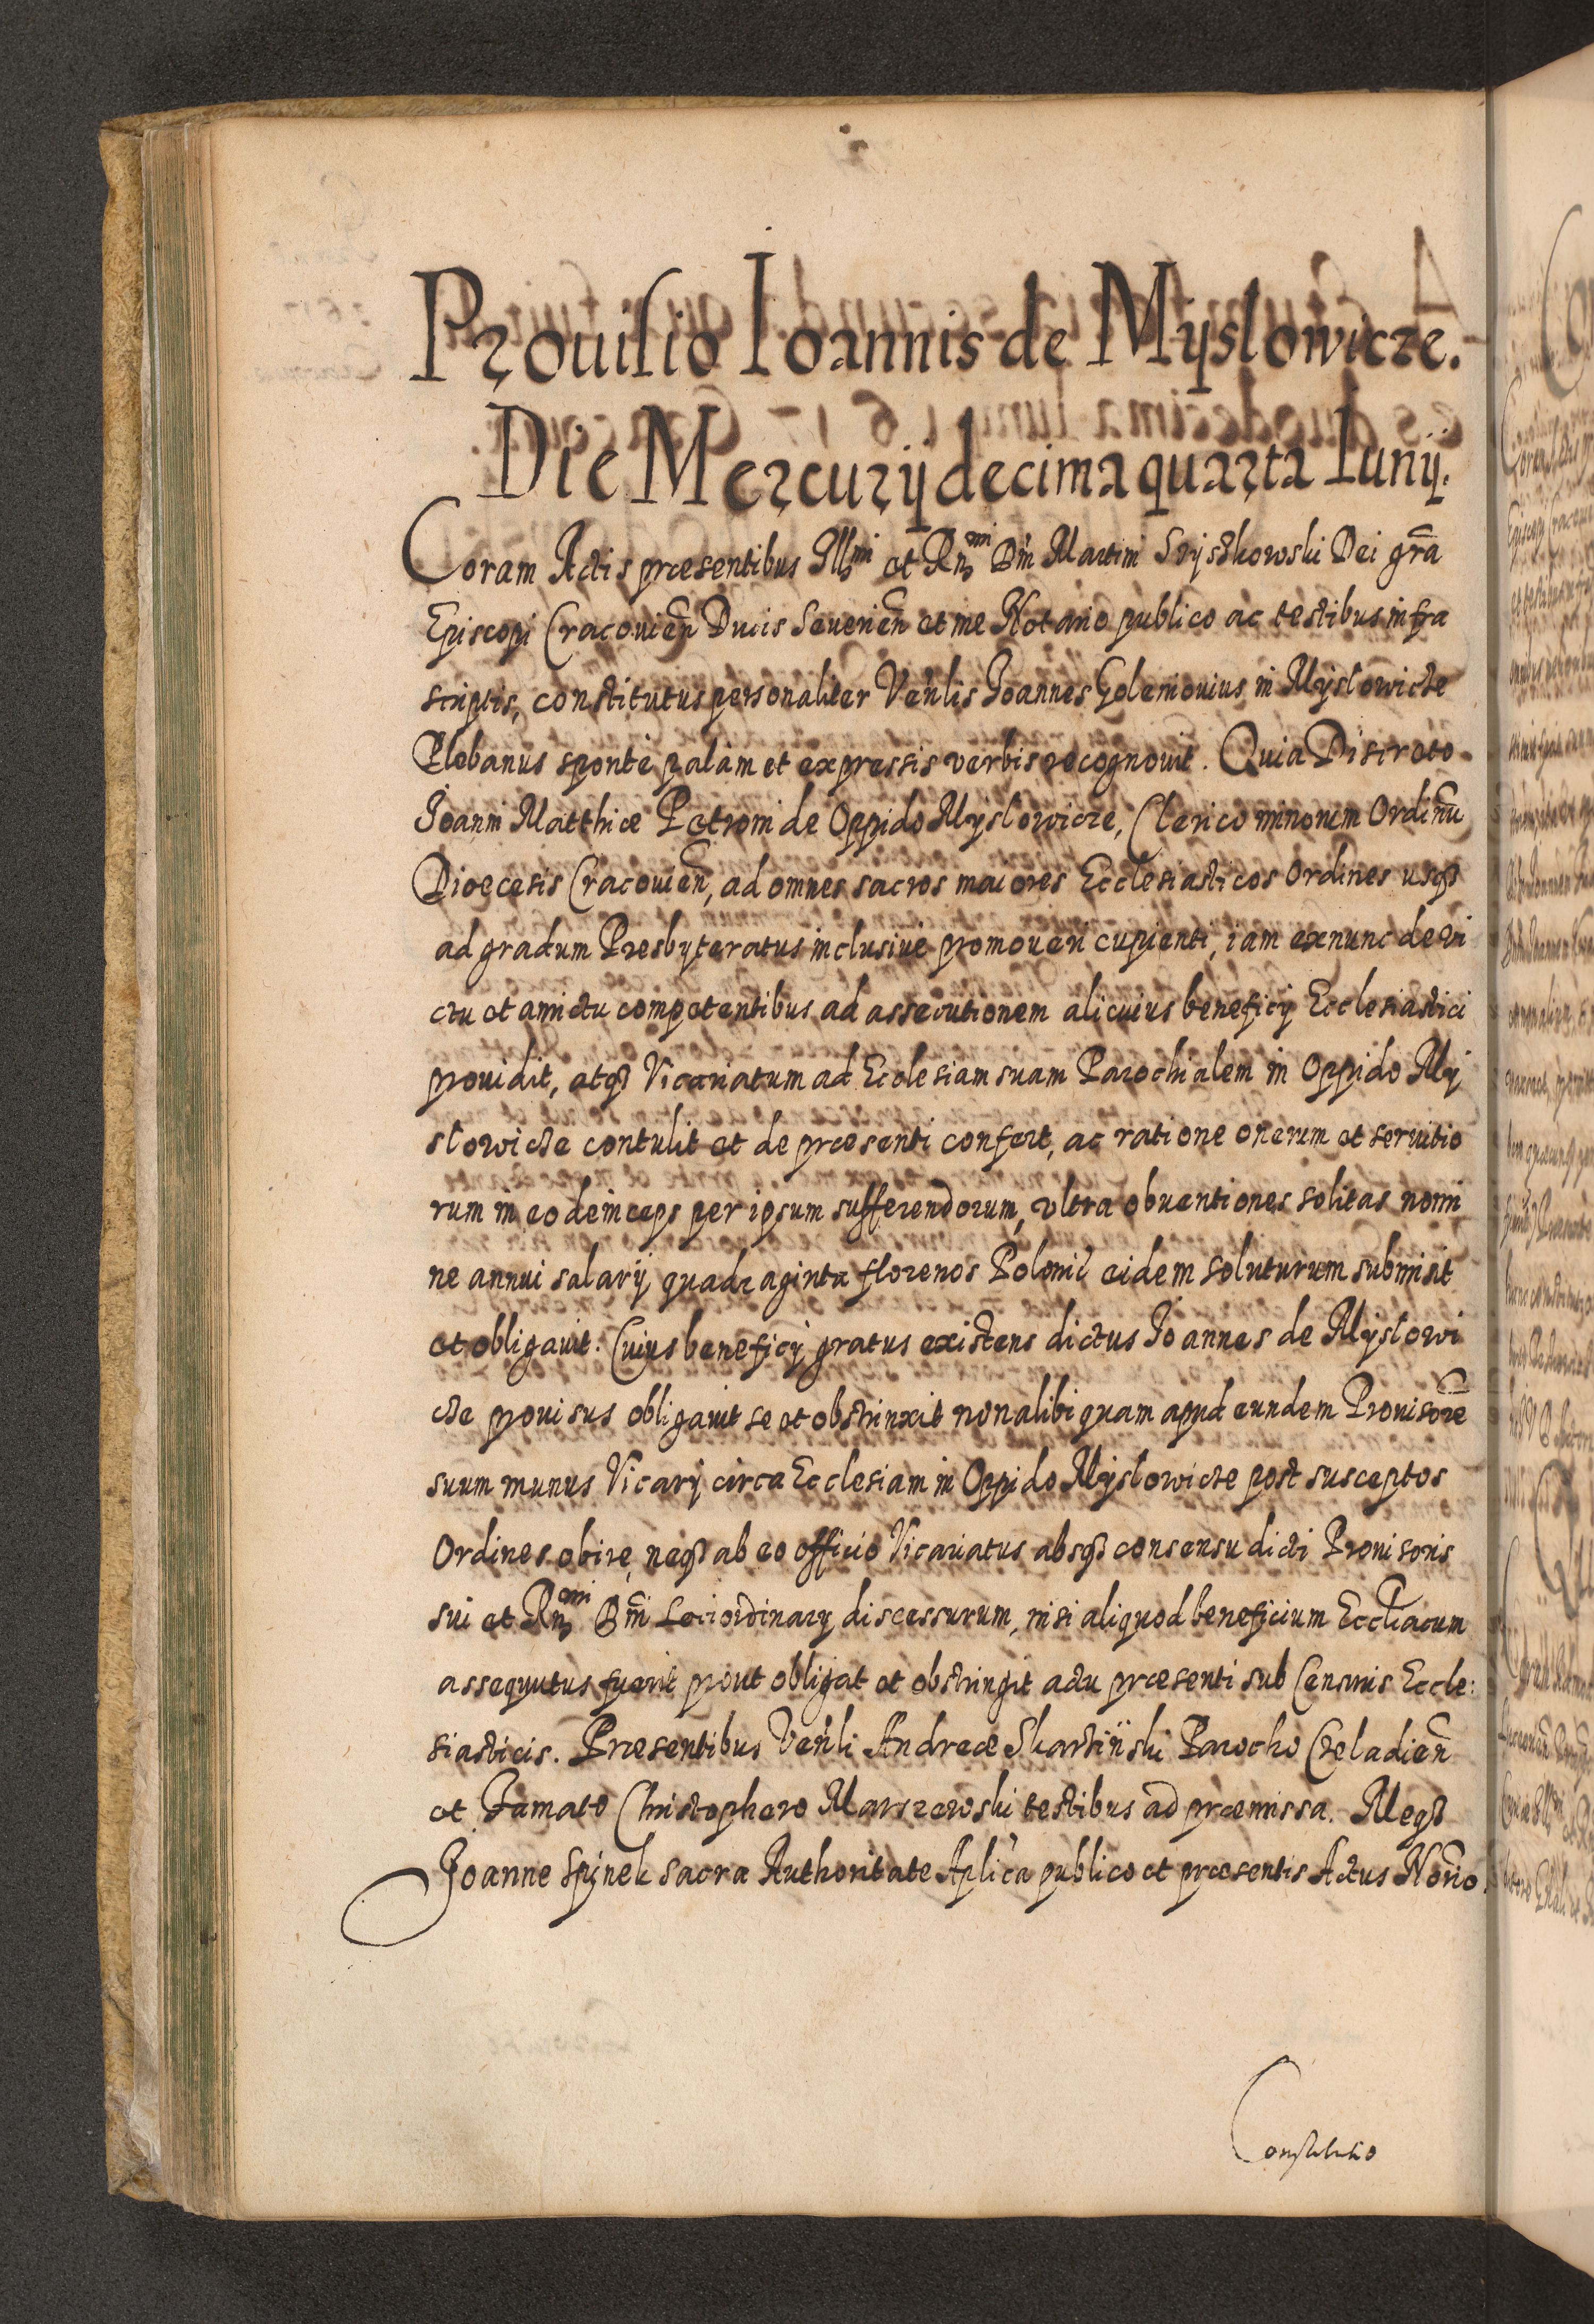 Prouisio Ioannis de Myslowicze.
Die Mercurij decima quarta Iunij.
Coram Actis præsentibus Illmi et Rndmi Dni Martini Szyszkowski Dei gra̅
Episcopi Cracouien̅ Ducis Seuerien̅ et me Notario publico ac testibus infra
scriptis, constitutus personaliter Venlis Joannes Golemouius in Myslowicze
Plebanus sponte palam et expressis verbis recognouit. Quia Discreto
Joanni Matthiæ Petroni de Oppido Myslowicze, Clerico minorum Ordinu̅
Dioecesis Cracouien̅, ad omnes sacros maiores Ecclesiasticos Ordines usq3
ad gradum Presbyteratus inclusiue promoueri cupienti, iam exnunc de vi
ctu et amictu competentibus ad assecutionem alicuius beneficij Ecclesiastici
prouidit, atq3 Vicariatum ad Ecclesiam suam Parochialem in Oppido My
slowicze contulit et de præsenti confert, ac ratione onerum et seruitio
rum in eo deinceps per ipsum sufferendorum, vltra obuentiones solitas nomi
ne annui salarij quadraginta florenos Polonic̅ eidem soluturum submisit
et obligauit. Cuius beneficij gratus existens dictus Joannes de Myslowi
cze prouisus obligauit se et obstrinxit non alibi quam apud eundem Prouisore̅
suum munus Vicarij circa Ecclesiam in Oppido Myslowicze post susceptos
Ordines obire, neq3 ab eo officio Vicariatus absq3 consensu dicti Prouisoris
sui et Rndmi Dni Loci ordinarij discessurum, nisi aliquod beneficium Eccliacum
assequutus fuerit prout obligat et obstringit actu præsenti sub Censuris Eccle:
siasticis. Præsentibus Venli Andreæ Skarbiński Parocho Czeladien̅
et Famato Christophero Marszewski testibus ad præmissa. Meq3
Joanne Spinek sacra Authoritate Aplica publico et præsentis Actus Norio.
Constitutio